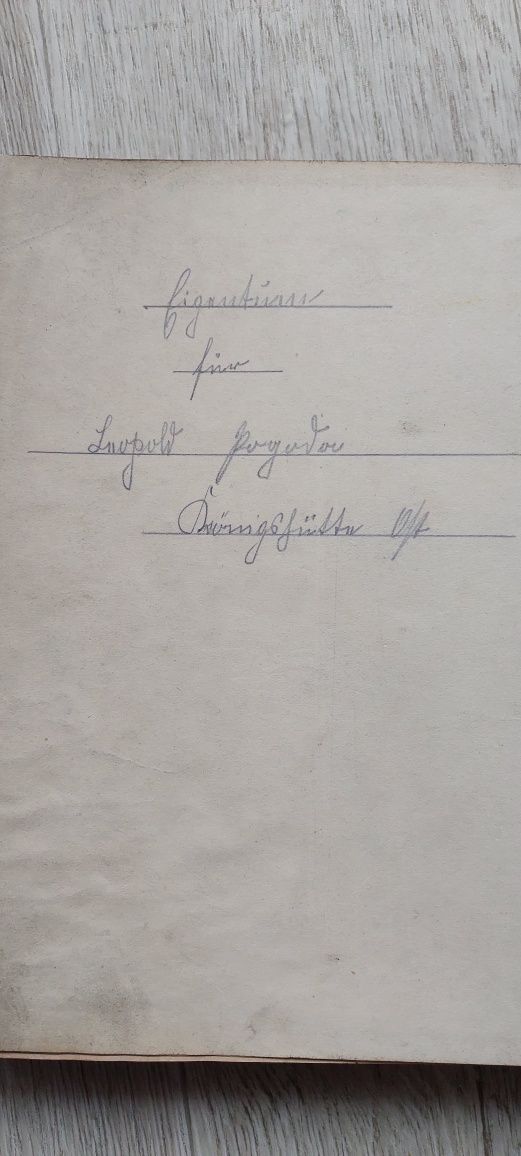 Eigentum
für
Leopold Pogoda
Königshütte Ost